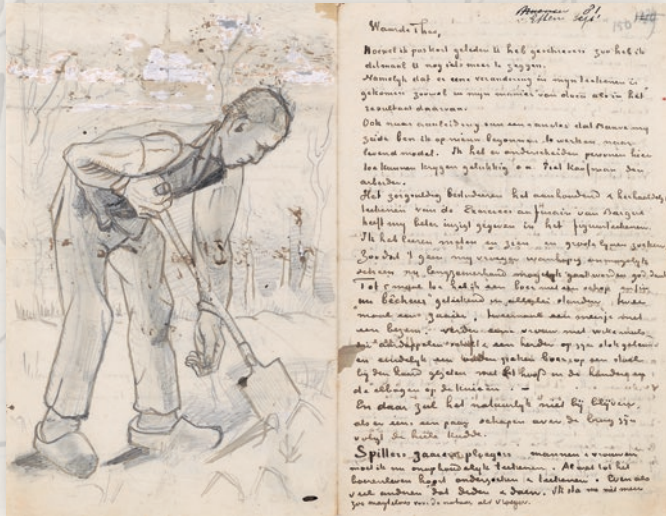 Etten Sept.
Waarde Theo,
Hoewel ik pas kort geleden U heb geschreven zoo heb ik
ditmaal U nog iets meer te zeggen.
Namelijk dat er eene verandering in mijn teekenen is
gekomen zoowel in mijn manier van doen als in het
resultaat daarvan.
Ook naar aanleiding van een en ander dat Mauve mij
zeide ben ik op nieuw begonnen te werken naar
levend model. Ik heb er onderscheiden personen hier
toe kunnen krijgen gelukkig o.a. Piet Kaufman den
arbeider.
Het zorgvuldig bestuderen het aanhoudend & herhaaldelijk
teekenen van de Exercices au fusain van Bargue
heeft mij beter inzigt gegeven in het figuurteekenen.
Ik heb leeren meten en zien en groote lijnen zoeken
Zoodat 't geen mij vroeger wanhopig onmogelijk
scheen nu langzamerhand mogelijk wordt
Tot 5 maal toe heb ik een boer met een schop enfin
un bêcheur geteekend in allerlei standen, twee
maal een zaaier, tweemaal een meisje met
een bezem. verder eene vrouw met witte muts
die aardappelen schilt & een herder op zijn stok geleund
en eindelijk een ouden zieken boer, op een stoel
bij den haard gezeten met het hoofd in de handen en
de elbogen op de knieen. –
En daar zal het natuurlijk niet bij blijven,
als er eens een paar schapen over de brug zijn
volgt de heele kudde.
Spitters, zaaiers, ploegers, mannen & vrouwen
moet ik nu onophoudelijk teekenen. Al wat tot het
boerenleven hoort onderzoeken & teekenen. Even als
veel anderen dat deden & doen. Ik sta nu niet meer
zoo magteloos voor de natuur als vroeger.